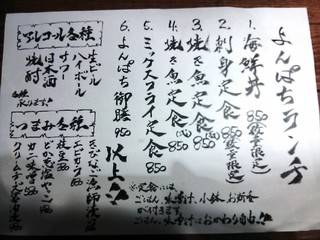 よんぱちランチ
1. 海鮮丼 850(数量限定)
2. 刺身定食 850(数量限定)
3. 焼き魚定食 850
4. 焼き魚定食 850
5. ミックスフライ定食 850
6. よんぱち御膳 850
以上
※定食には
ごはん、味噌汁、小鉢、お新香
が付きます。
ごはん、味噌汁はおかわり自由!!
アルコール各種
生ビール
ハイボール
サワー
日本酒
焼酎
各種
つまみ各種
枝豆
エビカツ